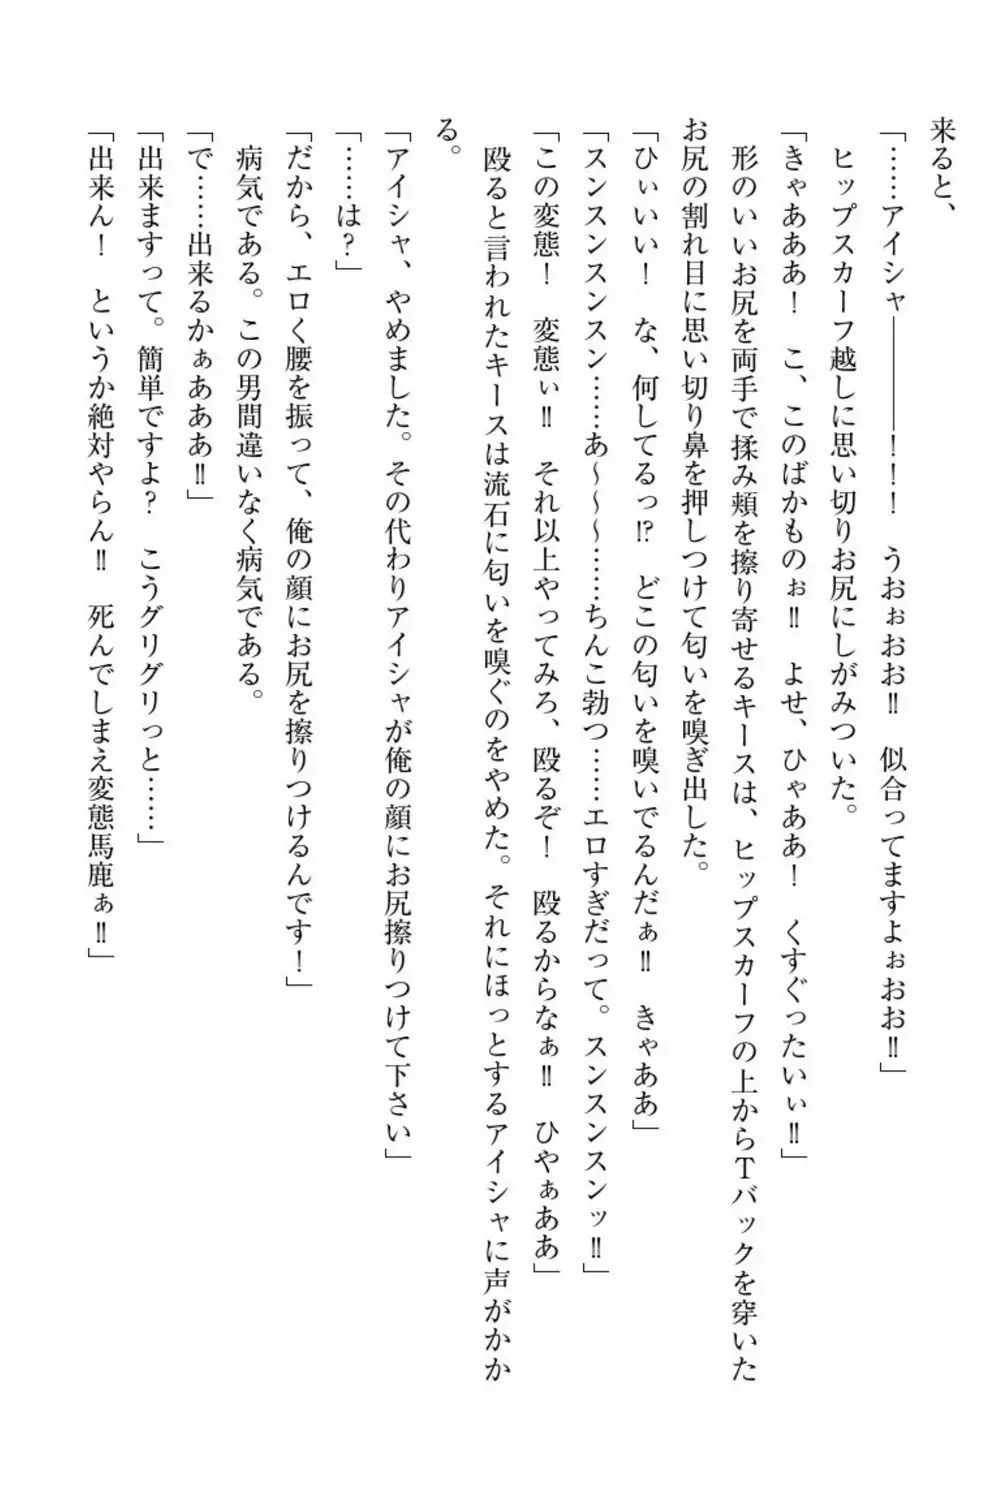 来ると、
「……アイシャ――――！！！　うおぉおお‼　似合ってますよぉおお‼」
　ヒップスカーフ越しに思い切りお尻にしがみついた。
「きゃあああ！　こ、このばかものぉ‼　よせ、ひゃああ！　くすぐったいぃ‼」
　形のいいお尻を両手で揉み頬を擦り寄せるキースは、ヒップスカーフの上からTバックを穿いた
お尻の割れ目に思い切り鼻を押しつけて匂いを嗅ぎ出した。
「ひぃいい！　な、何してるっ⁉　どこの匂いを嗅いでるんだぁ‼　きゃああ」
「スンスンスンスン……あ～～～……ちんこ勃つ……エロすぎだって。スンスンスンッ‼」
「この変態！　変態ぃ‼　それ以上やってみろ、殴るぞ！　殴るからなぁ‼　ひやぁああ」
　殴ると言われたキースは流石に匂いを嗅ぐのをやめた。それにほっとするアイシャに声がかか
る。
「アイシャ、やめました。その代わりアイシャが俺の顔にお尻擦りつけて下さい」
「……は？」
「だから、エロく腰を振って、俺の顔にお尻を擦りつけるんです！」
　病気である。この男間違いなく病気である。
「で……出来るかぁあああ‼」
「出来ますって。簡単ですよ？　こうグリグリっと……」
「出来ん！　というか絶対やらん‼　死んでしまえ変態馬鹿ぁ‼」